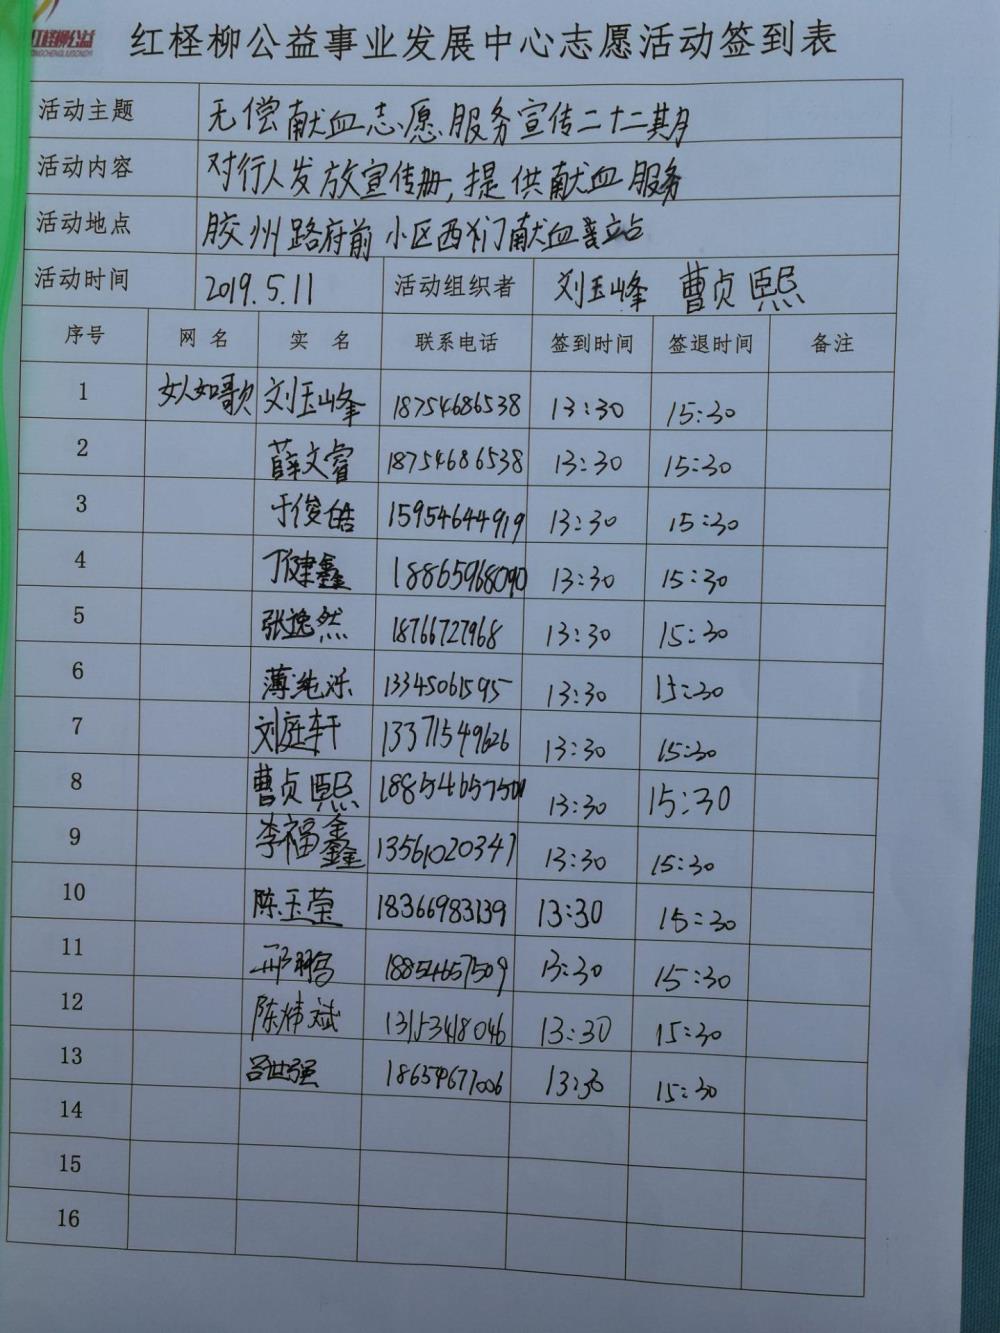 红柽柳公益
红柽柳公益事业发展中心志愿活动签到表
活动主题 无偿献血志愿服务宣传二十二期
活动内容 对行人发放宣传册,提供献血服务
活动地点 胶州路府前小区西门献血站
活动时间 2019.5.11 活动组织者 刘玉峰 曹贞熙
序号 网名 实名 联系电话 签到时间 签退时间 备注
1 女人如歌 刘玉峰 18754686538 13:30 15:30
2 薛文睿 18754686538 13:30 15:30
3 于俊皓 15954644919 13:30 15:30
4 丁健鑫 18865968090 13:30 15:30
5 张逸然 18766727968 13:30 15:30
6 薄纯泺 13345061595 13:30 15:30
7 刘庭轩 13371549626 13:30 15:30
8 曹贞熙 13:30 15:30
9 李福鑫 13561020347 13:30 15:30
10 陈玉莹 18366983139 13:30 15:30
11 邢鹏 18854657509 13:30 15:30
12 陈炜斌 13153418046 13:30 15:30
13 吕世强 18654677006 13:30 15:30
14
15
16